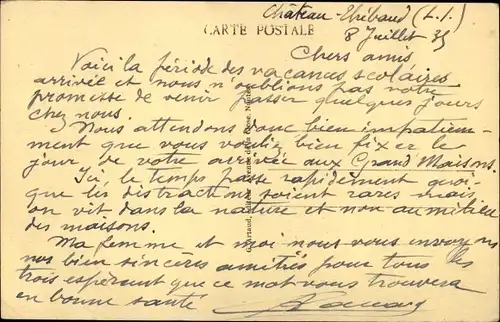 Château-Thébaud (L.I.)
8 Juillet 35
CARTE POSTALE
Chers amis
Voici la période des vacances scolaires
arrivée et nous n'oublions pas votre
promesse de venir passer quelques jours
chez nous.
Nous attendons donc bien impatiem-
ment que vous vouliez bien fixer le
jour de votre arrivée aux Grand Maisons.
Ici, le temps passe rapidement quoi-
que les distractions soient rares mais
on vit dans la nature et non au milieu
des maisons.
Ma femme et moi nous vous envoyons
nos bien sincères amitiés pour tous les
trois espérant que ce mot vous trouvera
en bonne santé